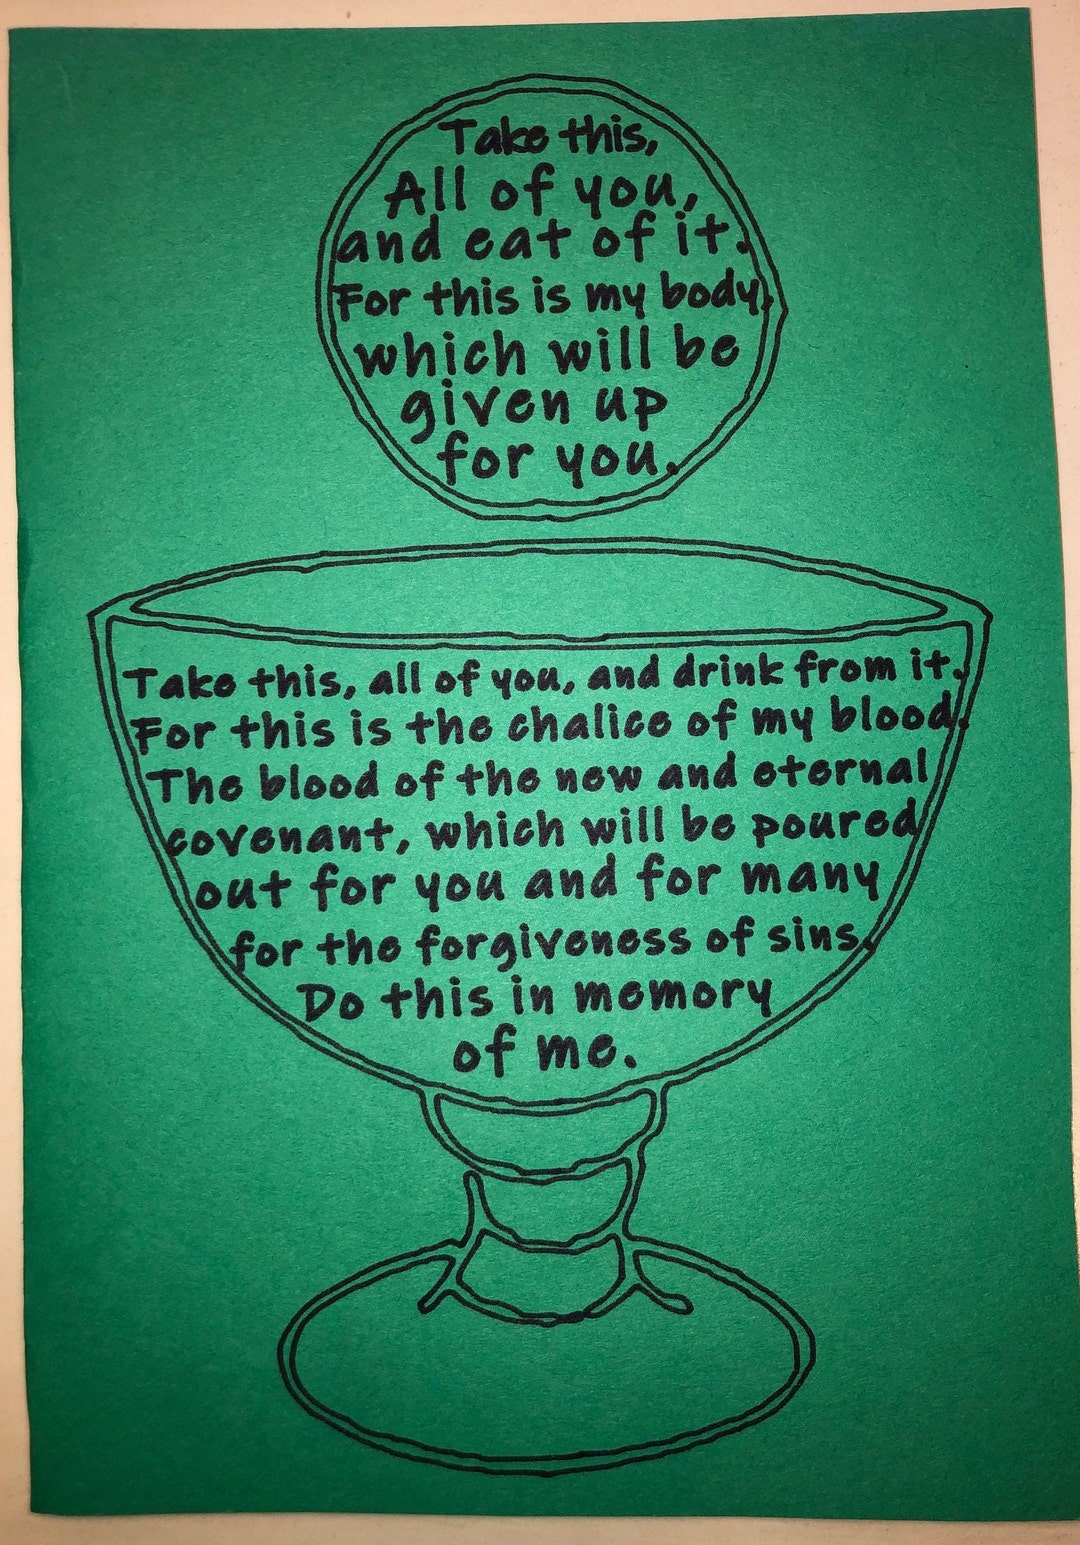 Take this,
All of you,
and eat of it.
For this is my body,
which will be
given up
for you.
Take this, all of you, and drink from it.
For this is the chalice of my blood.
The blood of the new and eternal
covenant, which will be poured
out for you and for many
for the forgiveness of sins.
Do this in memory
of me.